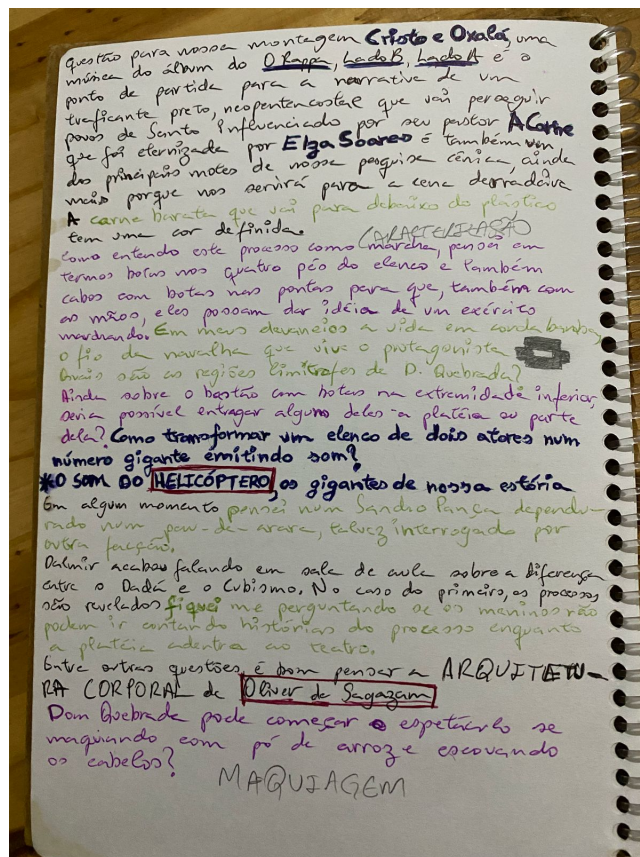 questão para nossa montagem Cristo e Oxalá, uma
música do álbum do O Rappa, Lado B, Lado A é o
ponto de partida para a narrativa de um
traficante preto, neopentencostal que vai perseguir
povos de Santo influenciado por seu pastor A Carne
que foi eternizada por Elza Soares é também um
dos principais motes de nossa pesquisa cênica, ainda
mais porque nos servirá para a cena derradeira
A carne barata que vai para debaixo do plástico
tem uma cor definida.
CARACTERIZAÇÃO
Como entendo este processo como marcha, pensei em
termos botas nos quatro pés do elenco e também
cabos com botas nas pontas para que, também com
as mãos, eles possam dar idéia de um exército
marchando. Em meus devaneios a vida em corda bamba,
o fio da navalha que vive o protagonista
Quais são as regiões limítrofes de D. Quebrada?
Ainda sobre o bastão com botas na extremidade inferior,
seria possível entregar alguns deles a platéia ou parte
dela? Como transformar um elenco de dois atores num
número gigante emitindo som?
*O SOM DO HELICÓPTERO, os gigantes de nossa estória
Em algum momento pensei num Sandro Pança dependu-
rado num pau-de-arara, talvez interrogado por
outra facção.
Dalmir acabou falando em sala de aula sobre a diferença
entre o Dadá e o Cubismo. No caso do primeiro, os processos
são revelados fiquei me perguntando se os meninos não
podem ir contando histórias do processo enquanto
a platéia adentra ao teatro.
Entre outras questões, é bom pensar a ARQUITETU-
RA CORPORAL de Oliver de Sagazam
Dom Quebrada pode começar o espetáculo se
maquiando com pó de arroz e escovando
os cabelos?
MAQUIAGEM